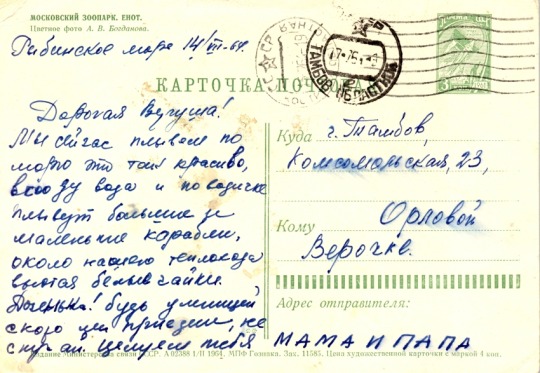 МОСКОВСКИЙ ЗООПАРК. ЕНОТ.
Цветное фото А. В. Богданова.
Рыбинское море 14/VII-64.
КАРТОЧКА ПОЧ
Дорогая Веруша!
Мы сейчас плывем по
морю это так красиво,
всюду вода и по водичке
плывут большие и
маленькие корабли,
около нашего теплохода
летают белые чайки.
Доченька! будь умницей
скоро приедем, не
скучай. Целуем тебя
МАМА И ПАПА
Куда г. Тамбов,
Комсомольская, 23,
Кому Орловой
Верочке.
Адрес отправителя:
Издание Министерства связи СССР. А 02388 1/II 1964. МПФ Гознака. Зак. 11585. Цена художественной карточки с маркой 4 коп.
ТАМБОВ ОБЛАСТНОЙ